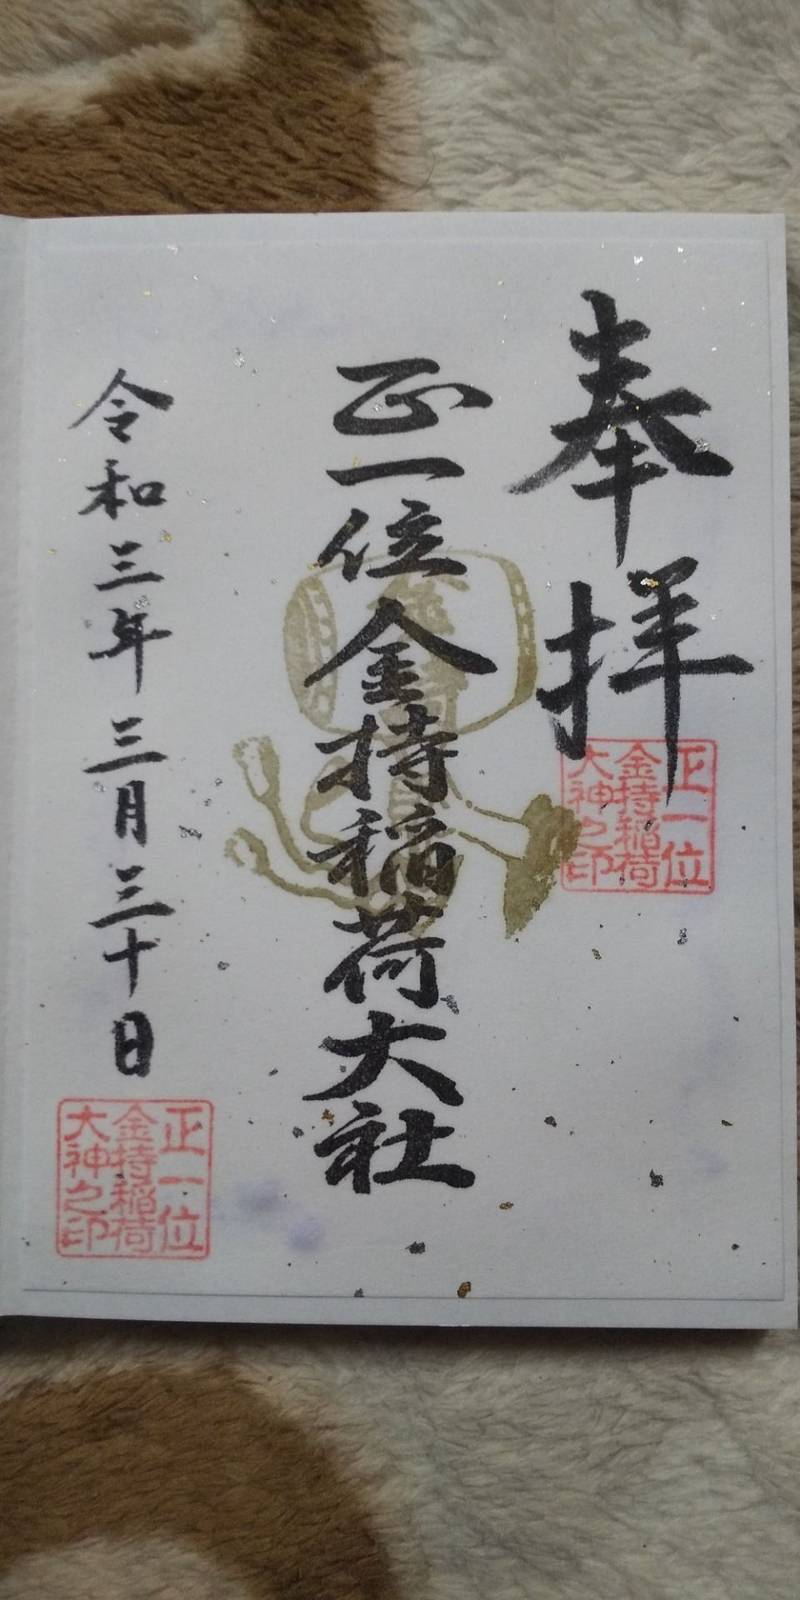 奉拝
正一位
金持稲荷
大神之印
正一位金持稲荷大社
令和三年三月三十日
正一位
金持稲荷
大神之印